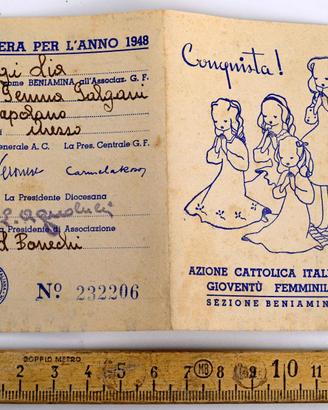 ERA PER L'ANNO 1948
gi Lia
ome BENIAMINA all'Associaz. G. F.
Gemma Galgani
apolano
i
Chesso
enerale A. C. La Pres. Centrale G. F.
Carmela Rossi
La Presidente Diocesana
La Presidente di Associazione
Bonechi
Nº 232206
Conquista!
AZIONE CATTOLICA ITAL
GIOVENTÙ FEMMINIL
SEZIONE BENIAMIN
DOPPIO METRO
2 3 4 5 6 7 MB 8 9 10 11